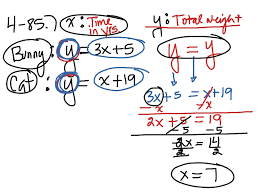 4-85.) x: Time in yrs
Bunny: y = 3x+5
Cat: y = x+19
y: Total weight
y = y
3x+5 = x+19
-x -x
2x+5 = 19
-5 -5
2x/2 = 14/2
x = 7